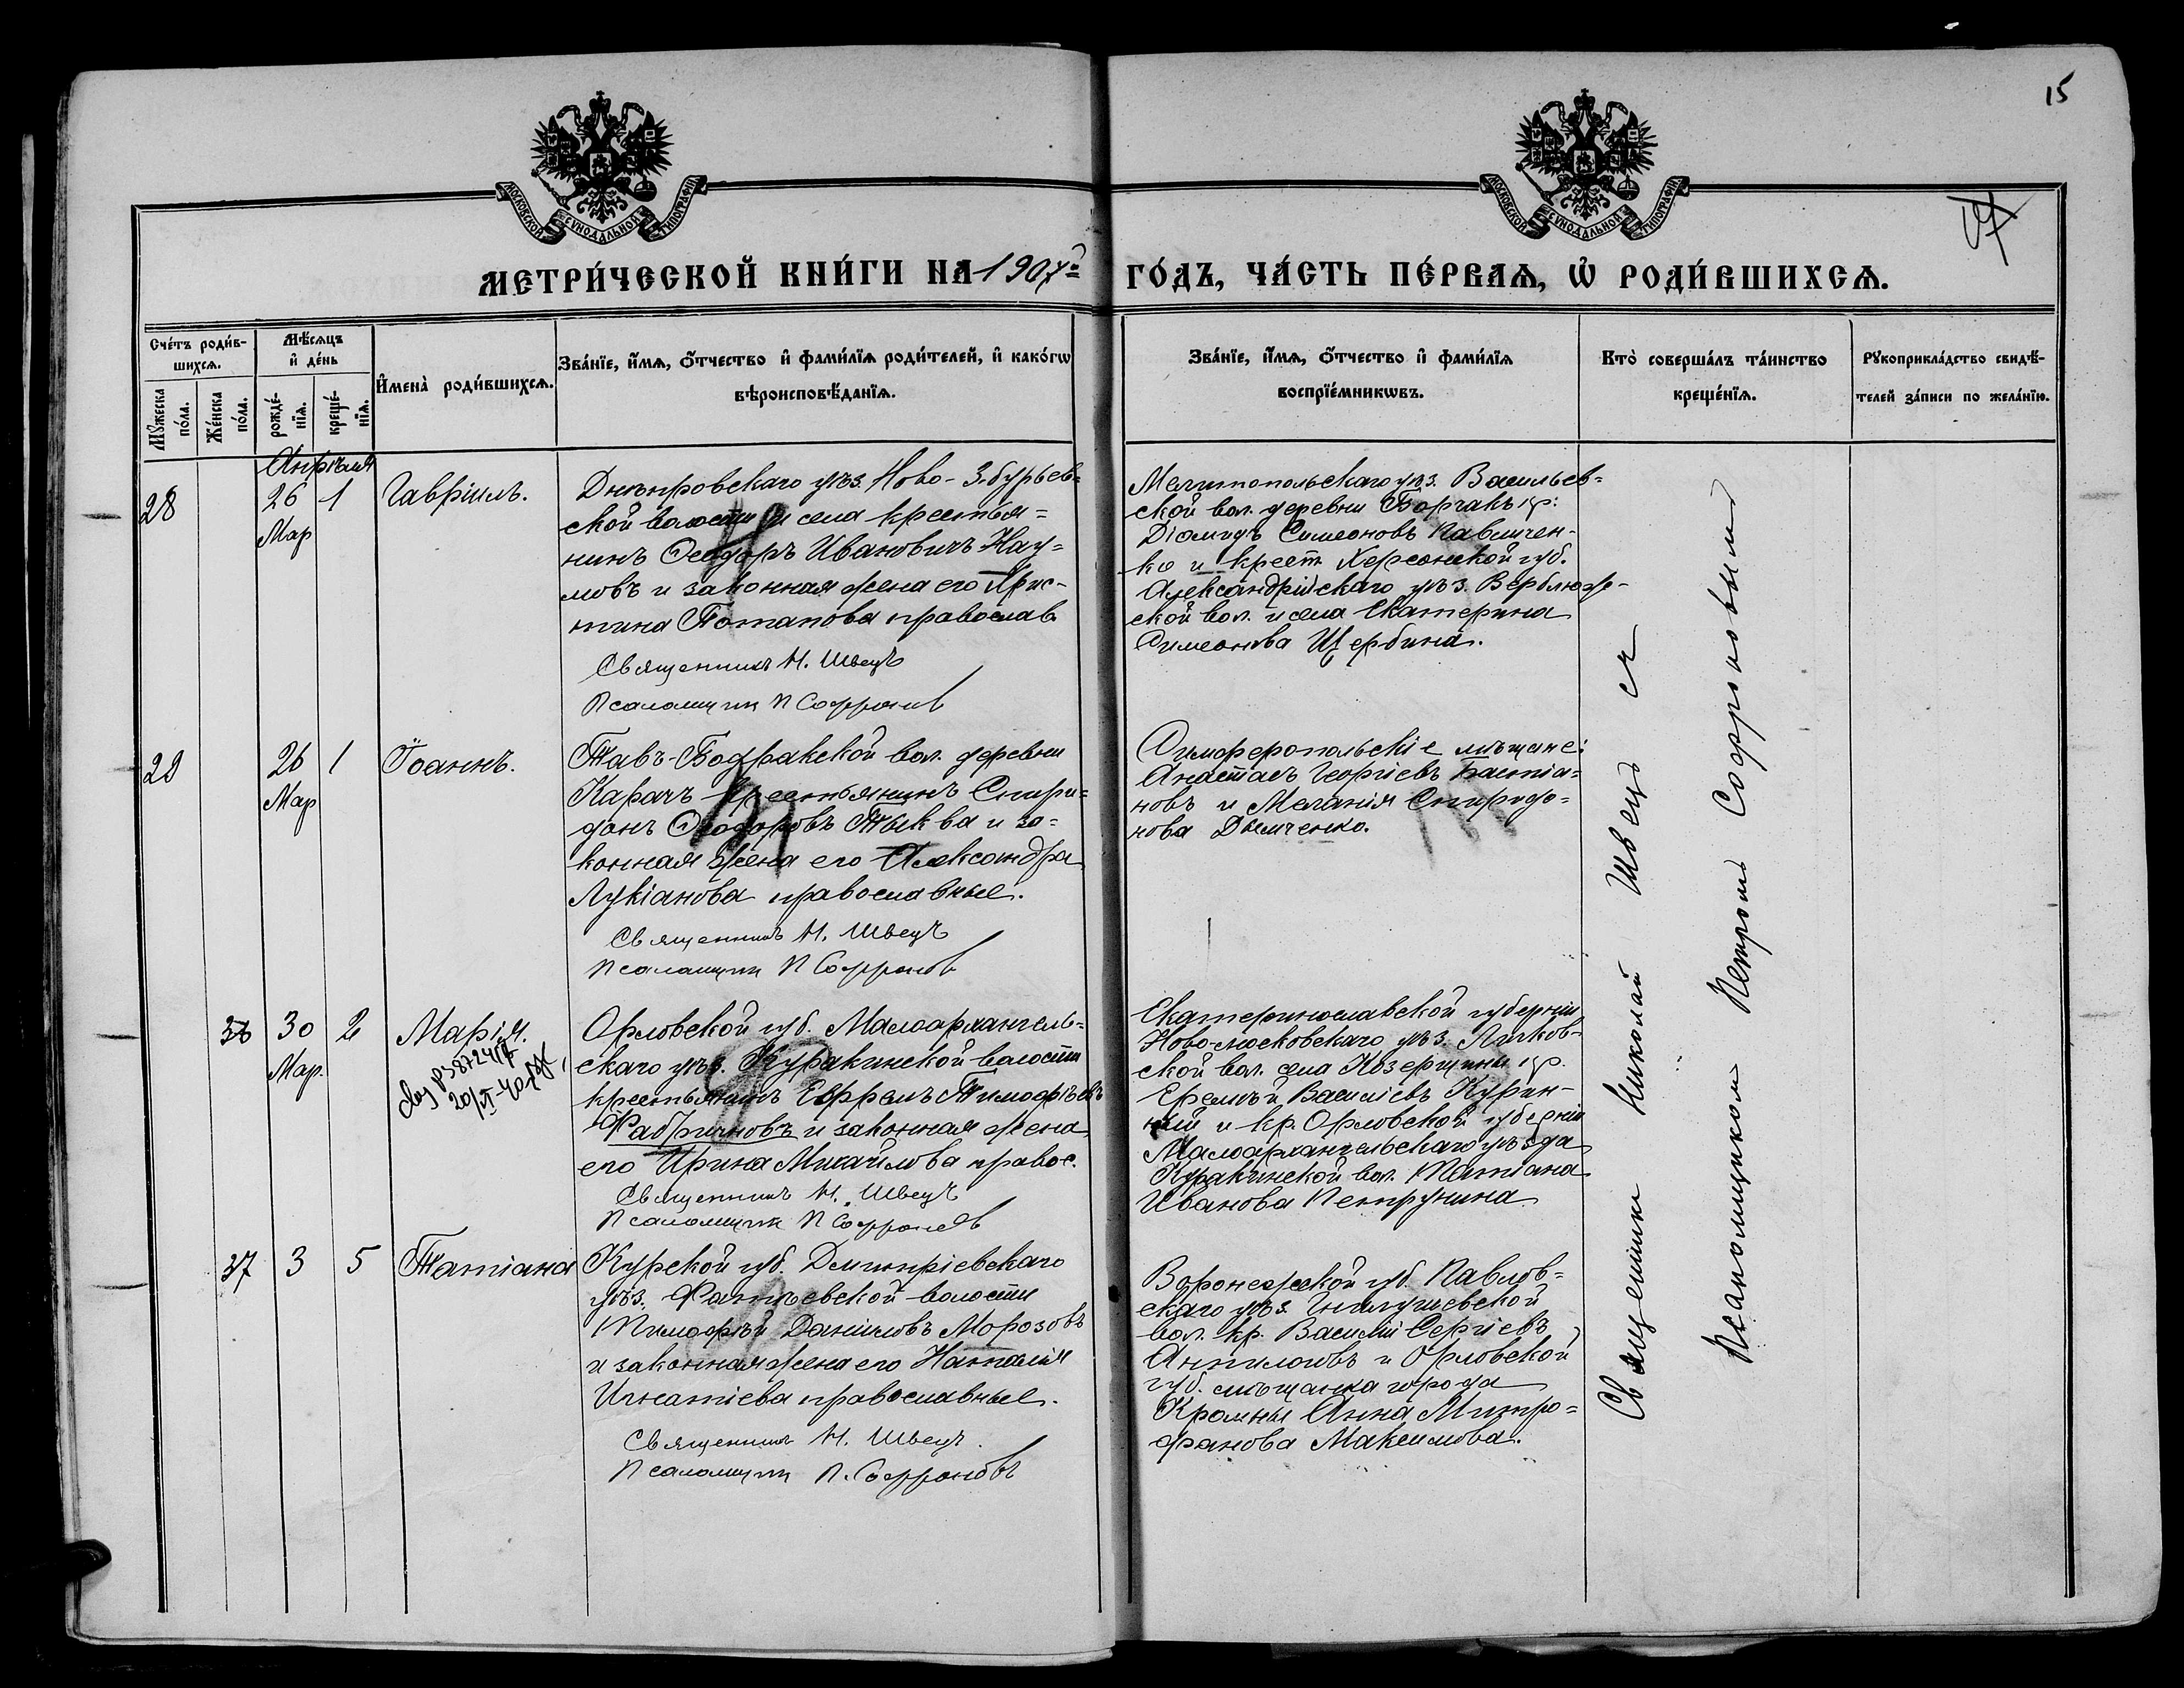 15
МОСКОВСКОЙ СУНОДАЛЬНОЙ ТИПОГРАФІИ
МОСКОВСКОЙ СУНОДАЛЬНОЙ ТИПОГРАФІИ
МЕТРИ́ЧЕСКОЙ КНИ́ГИ НА 1907й ГО́ДЪ, ЧА́СТЬ ПЕ́РВАѦ, Ѡ҆ РОДИ́ВШИХСѦ.
Сче́тъ роди́в-
шихсѧ.
Мꙋ́жеска
по́ла.
Же́нска
по́ла.
Мѣ́сѧцъ
и҆ де́нь
рожде́-
нїѧ.
креще́-
нїѧ.
И҆мена̀ роди́вшихсѧ.
Зва́нїе, и҆́мѧ, ѻ҆́тчество и҆ фами́лїѧ роди́телей, и҆ како́гѡ
вѣроисповѣ́данїѧ.
Зва́нїе, и҆́мѧ, ѻ҆́тчество и҆ фами́лїѧ
воспрїе́мникѡвъ.
Кто̀ соверша́лъ та́инство
креще́нїѧ.
Рꙋкоприкла́дство свидѣ́-
телей за́писи по жела́нїю.
Апрѣля
28
26
Мар
1
Гавріилъ.
Днѣпровскаго уѣз. Ново-Збурьев-
ской волости и села крестья=
нинъ Ѳеодоръ Ивановичъ Нау=
мовъ и законная жена его Хрис-
тина Потапова православ.
Священникъ Н. Швецъ
Псаломщик П Софронов
Мелитопольскаго уѣз. Васильев=
ской вол. деревни
Діомидъ Симеоновъ Павличен-
ко и крест. Херсонской губ.
Александрійскаго уѣз. Верблюж-
ской вол. и села Екатерина
Симеонова Щербина.
29
26
Мар
1
Іоаннъ.
Тавъ-Бодракской вол. деревни
Карачъ крестьянинъ Спири=
донъ Ѳеодоровъ Тыква и за=
конная жена его Александра
Лукіанова православные.
Священникъ Н. Швецъ
Псаломщик П Софронов
Симферопольскіе мѣщане:
Анастасъ Георгіевъ Бастіа=
новъ и Меланія Спиридо=
нова Дымченко.
36
30
Мар.
2
Марія.
Орловской губ. Малоархангель=
скаго уѣз. Куракинской волости
крестьянинъ Ефремъ Тимофѣевъ
Фабричновъ и законная жена
его Ирина Михайлова правос.
Священникъ Н. Швецъ
Псаломщик П Софроновъ
Екатеринославской губерніи
Ново-московскаго уѣз. Личков-
ской вол. села Козерщины кр.
Еремѣй Василіевъ Курин-
ный и кр. Орловской губерніи
Малоархангельскаго уѣзда
Куракинской вол. Татіана
Иванова Петрунина.
37
3
5
Татіана
Курской губ. Дмитріевскаго
уѣз. Фатѣевской волости
Тимофѣй Даниловъ Морозовъ
и законная жена его Наталія
Игнатіева православные.
Священникъ Н. Швецъ.
Псаломщик П. Софроновъ
Воронежской губ. Павлов=
скаго уѣз. Гнилушевской
вол. кр. Василій Сергіевъ
Антиповъ и Орловской
губ. мѣщанка города
Кромны Анна Митро=
фанова Максимова.
Священник Николай Швецъ съ
Псаломщиком Петромъ Софроновымъ